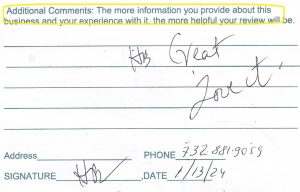 Additional Comments: The more information you provide about this
business and your experience with it, the more helpful your review will be.
Great
Love it
Address PHONE 732.881.9059
SIGNATURE DATE 1/13/24